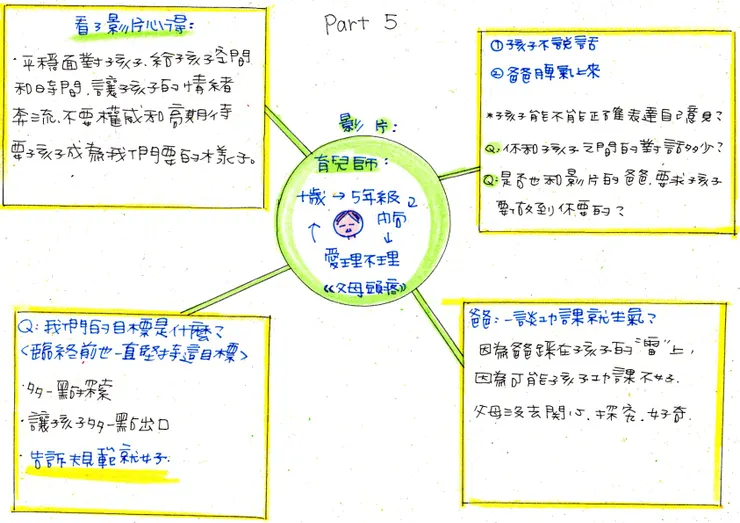 Part 5
看了影片心得:
·平穩面對孩子.給孩子空間
和時間.讓孩子的情緒
奔流.不要權威和高期待
要孩子成為我們要的樣子。
①孩子不說話
②爸脾氣上來
*孩子能不能正確表達自己意見?
Q:你和孩子之間的對話多少?
Q:是否也和影片的爸.要求孩子
要做到你要的?
影片:
育兒師:
十歲→5年級
內向
愛理不理
《父母頭疼》
Q:我們的目標是什麼?
<臨終前也一直堅持這目標>
·多一點探索
·讓孩子多一點出口
·告訴規範就好.
爸:一談功課就生氣?
因為爸踩在孩子的"雷"上,
因為可能孩子功課不好.
父母沒去關心.探究.好奇.